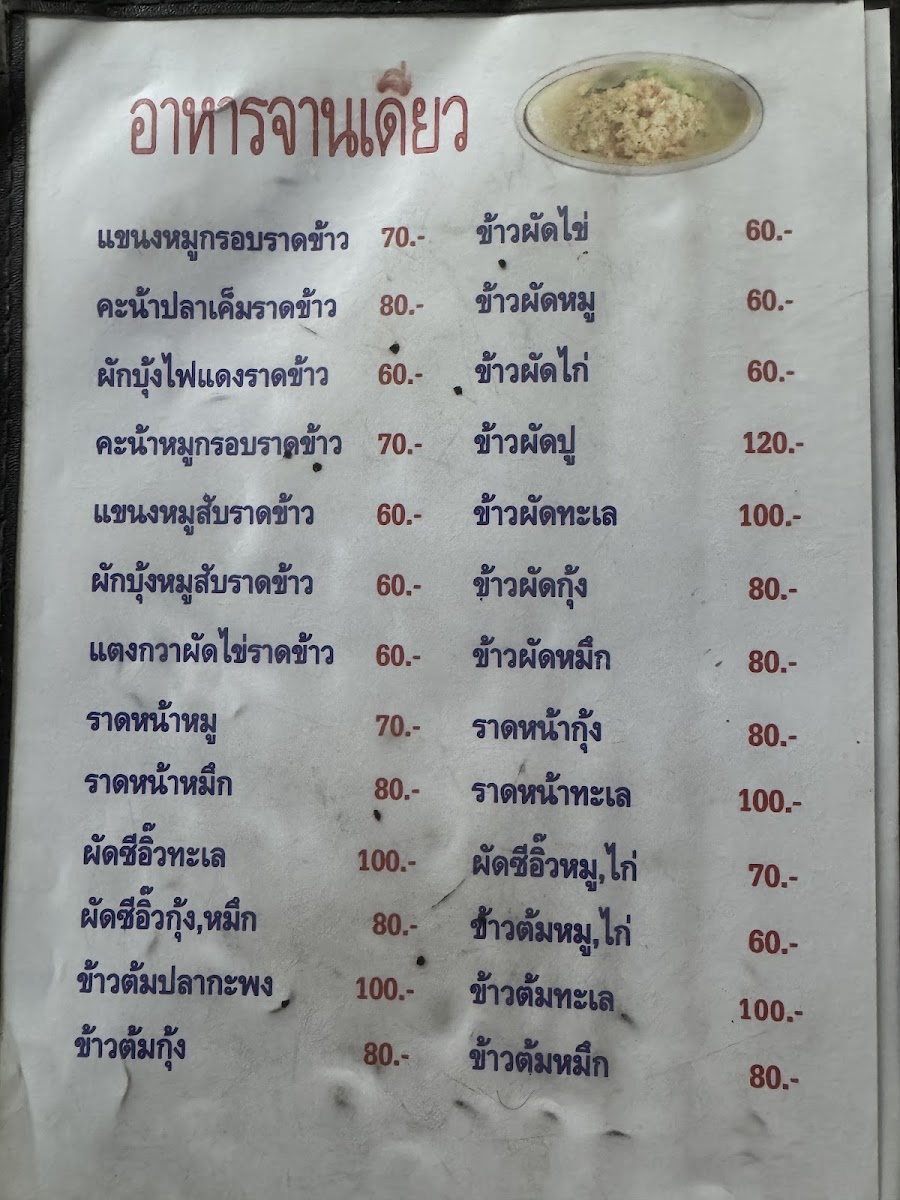 อาหารจานเดี่ยว
แขนงหมูกรอบราดข้าว 70.-
คะน้าปลาเค็มราดข้าว 80.-
ผักบุ้งไฟแดงราดข้าว 60.-
คะน้าหมูกรอบราดข้าว 70.-
แขนงหมูสับราดข้าว 60.-
ผักบุ้งหมูสับราดข้าว 60.-
แตงกวาผัดไข่ราดข้าว 60.-
ราดหน้าหมู 70.-
ราดหน้าหมึก 80.-
ผัดซีอิ๊วทะเล 100.-
ผัดซีอิ๊วกุ้ง,หมึก 80.-
ข้าวต้มปลากะพง 100.-
ข้าวต้มกุ้ง 80.-
ข้าวผัดไข่ 60.-
ข้าวผัดหมู 60.-
ข้าวผัดไก่ 60.-
ข้าวผัดปู 120.-
ข้าวผัดทะเล 100.-
ข้าวผัดกุ้ง 80.-
ข้าวผัดหมึก 80.-
ราดหน้ากุ้ง 80.-
ราดหน้าทะเล 100.-
ผัดซีอิ๊วหมู,ไก่ 70.-
ข้าวต้มหมู,ไก่ 60.-
ข้าวต้มทะเล 100.-
ข้าวต้มหมึก 80.-